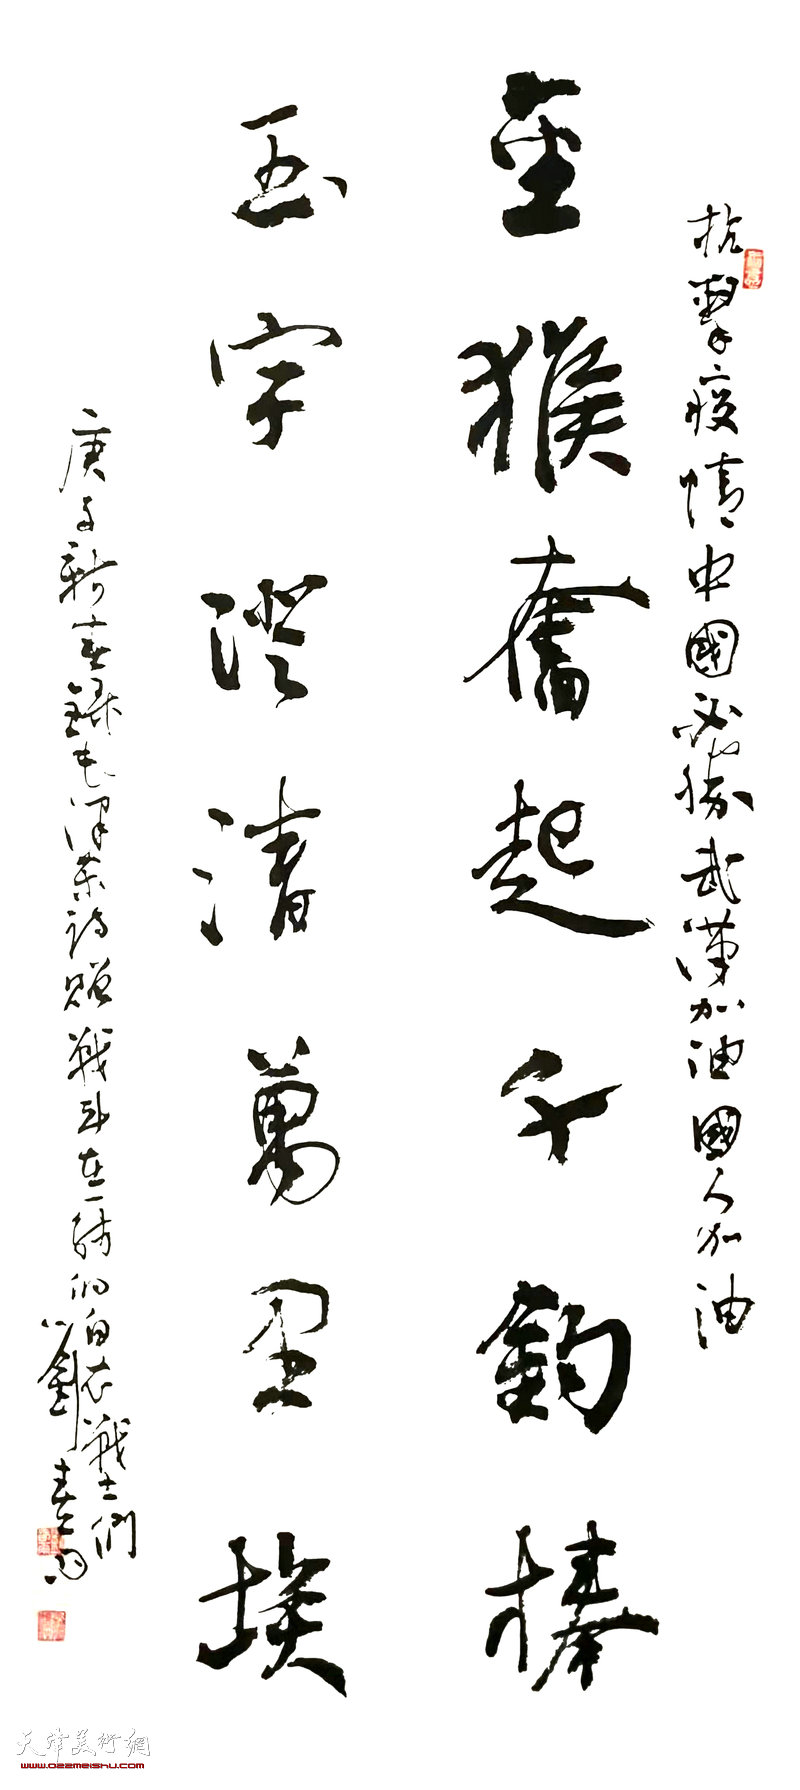 抗擊疫情中國必勝武漢加油國人加油
金猴奮起千鈞棒
玉宇澄清萬里埃
庚子新春錄毛澤東詩贈戰斗在一線的白衣戰士們
劉春雨
天津美術網
www.022meishu.com